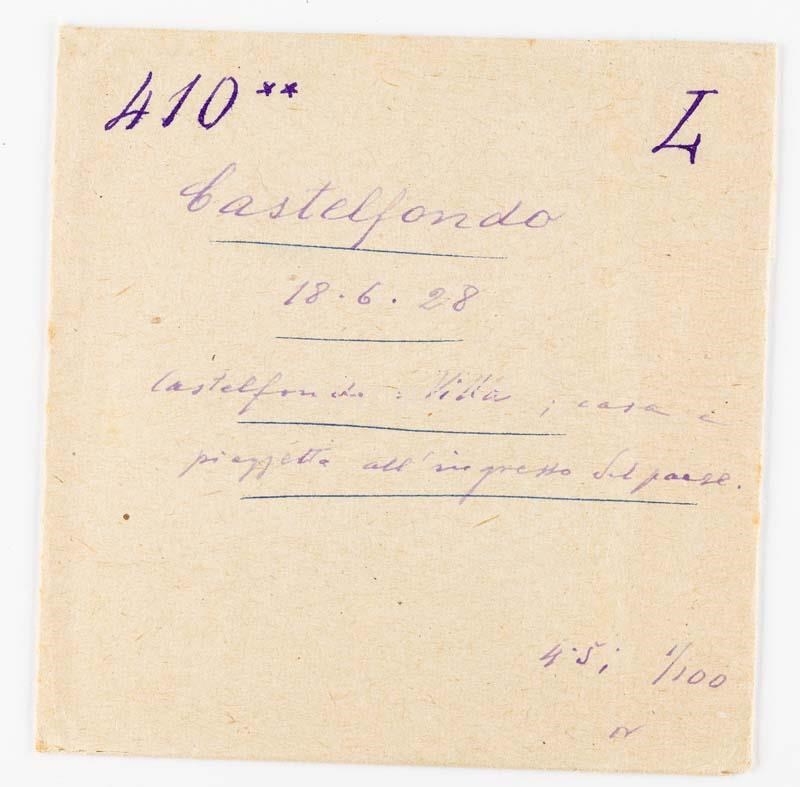 410** L
Castelfondo
18.6.28
Castelfondo: Villa; casa e
piazzetta all'ingresso del paese.
4.5; 1/100